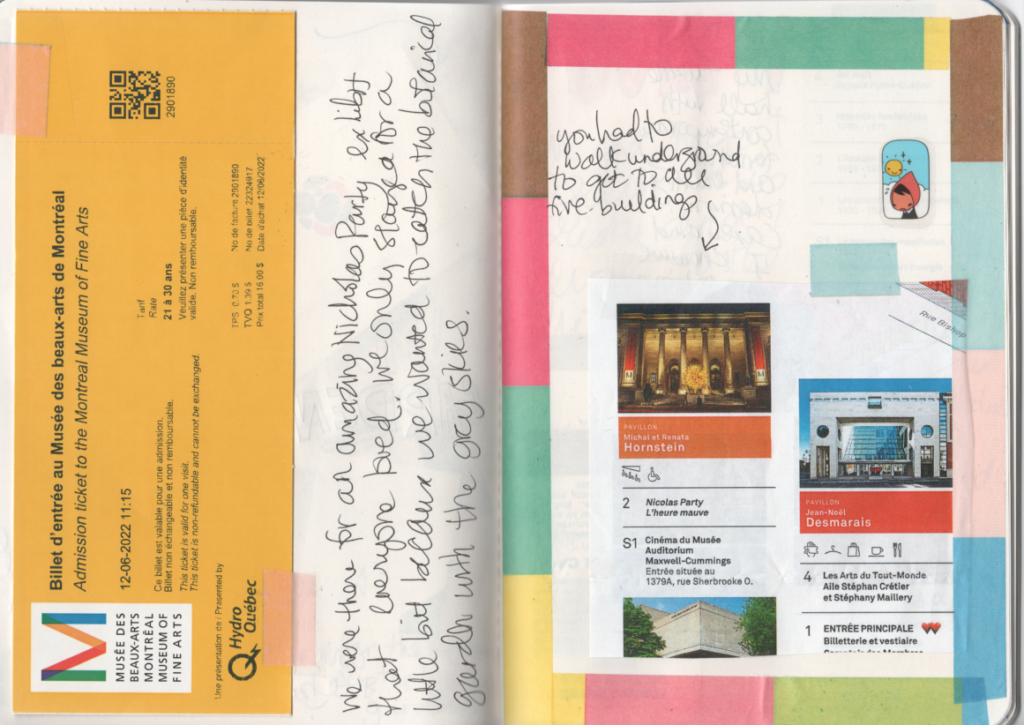 Billet d'entrée au Musée des beaux-arts de Montréal
Admission ticket to the Montreal Museum of Fine Arts
12-06-2022 11:15
Tarif
Rate
21 à 30 ans
Veuillez présenter une pièce d'identité
valide. Non remboursable.
Ce billet est valable pour une admission.
Billet non échangeable et non remboursable.
This ticket is valid for one visit.
This ticket is non-refundable and cannot be exchanged.
TPS 0.70 $
TVQ 1.39 $
Prix total 16.00 $
No de facture 2901890
No de billet 22324917
Date d'achat 12/06/2022
2901890
M
MUSÉE DES
BEAUX-ARTS
MONTRÉAL
MUSEUM OF
FINE ARTS
Une présentation de / Presented by
Hydro
Québec
We were there for an amazing Nicholas Party exhibit
that everyone loved. We only stayed for a
little bit because we wanted to catch the botanical
garden with the grey skies.
you had to
walk underground
to get to all
five buildings
Rue Bishop
PAVILLON
Michal et Renata
Hornstein
2 Nicolas Party
L'heure mauve
S1 Cinéma du Musée
Auditorium
Maxwell-Cummings
Entrée située au
1379A, rue Sherbrooke O.
PAVILLON
Jean-Noël
Desmarais
4 Les Arts du Tout-Monde
Aile Stéphan Crétier
et Stéphany Maillery
1 ENTRÉE PRINCIPALE
Billetterie et vestiaire